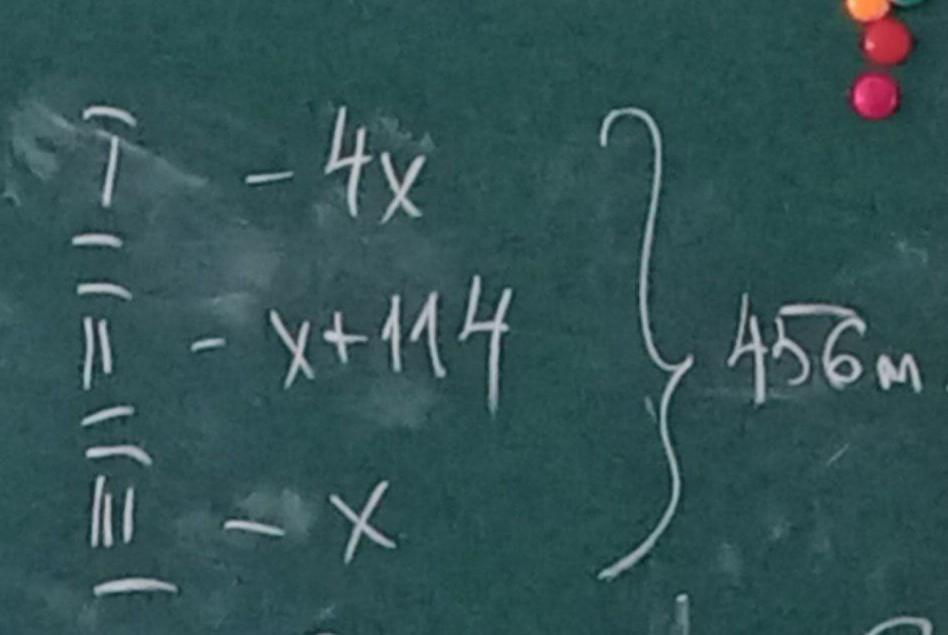 I - 4x
II - x+114
III - x
456м